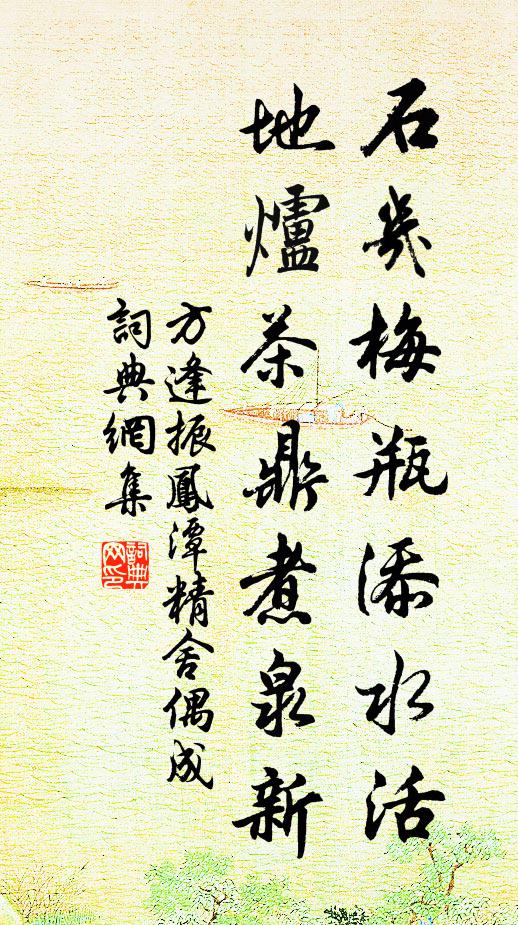 石几梅瓶添水活
地爐茶鼎煮泉新
方逢振鳳潭精舍偶成
詞典網集
詞典網印